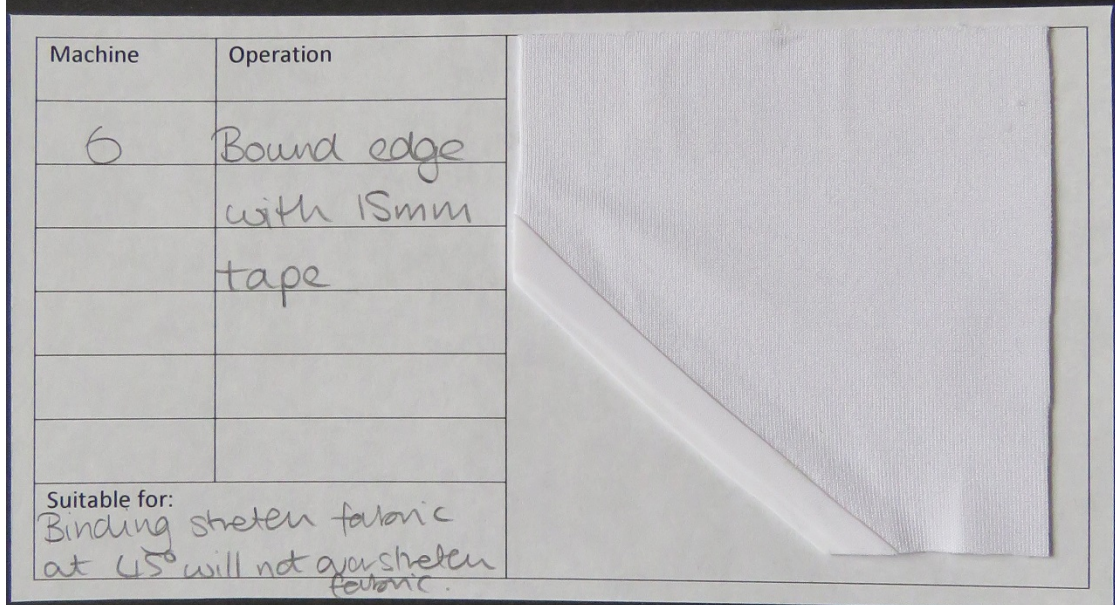 Machine Operation
6 Bound edge
with 15mm
tape
Suitable for:
Binding stretch fabric
at 45° will not overstretch
fabric.